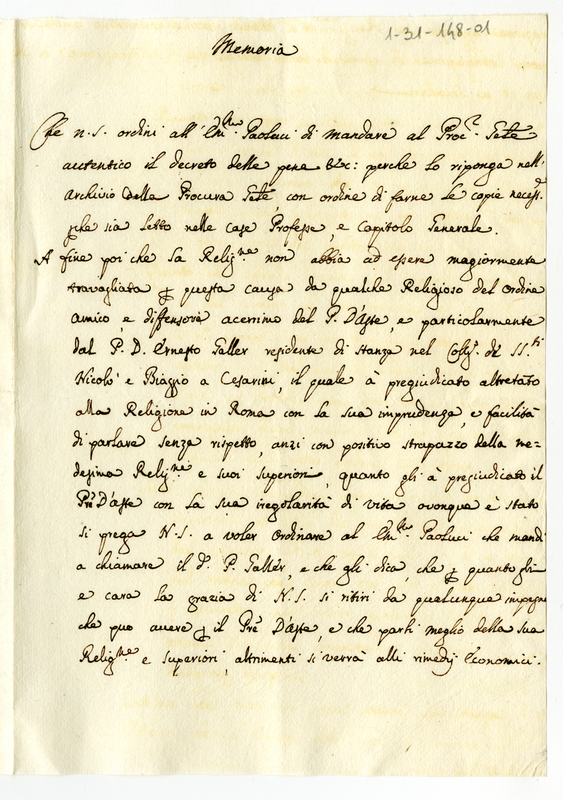 1-31-148-01
Memoria
Che N.S. ordini all' Em.mo Paoluci di mandare al Proc.r Gen̄le
autentico il decreto delle pene &c: perche lo riponga nell'
Archivio della Procura Gen̄le, con ordine di farne le copie necess.e
ꝑche sia letto nelle case Professe, e Capitolo Generale.
A fine poi che la Relig.ne non abbia ad essere magiormente
travagliata ꝑ questa causa da qualche Religioso del ordine
amico, e diffensore acerrimo del P. D'Aste, e particolarmente
dal P. D. Ernesto Galler residente di stanza nel Coll.o di SS.ti
Nicolo' e Biaggio a Cesarini, il quale à pregiudicato altretato
alla Religione in Roma con la sua imprudenza, e facilità
di parlare senza rispetto, anzi con positivo strapazzo della me=
desima Relig.ne e suoi superiori, quanto gli à pregiudicato il
Pr̄e D'Aste con la sua iregolarità di vita ovonque è stato
si prega N.S. a voler ordinare al Em.mo Paoluci che mandi
a chiamare il d.o P. Galler, e che gli dica, che ꝑ quanto gli
e cara la grazia di N.S. si ritiri da qualunque impegno
che puo avere ꝑ il Pr̄e D'Aste, e che parli meglio della sua
Relig.ne e superiori, altrimenti si verrà alli rimedij Economici.